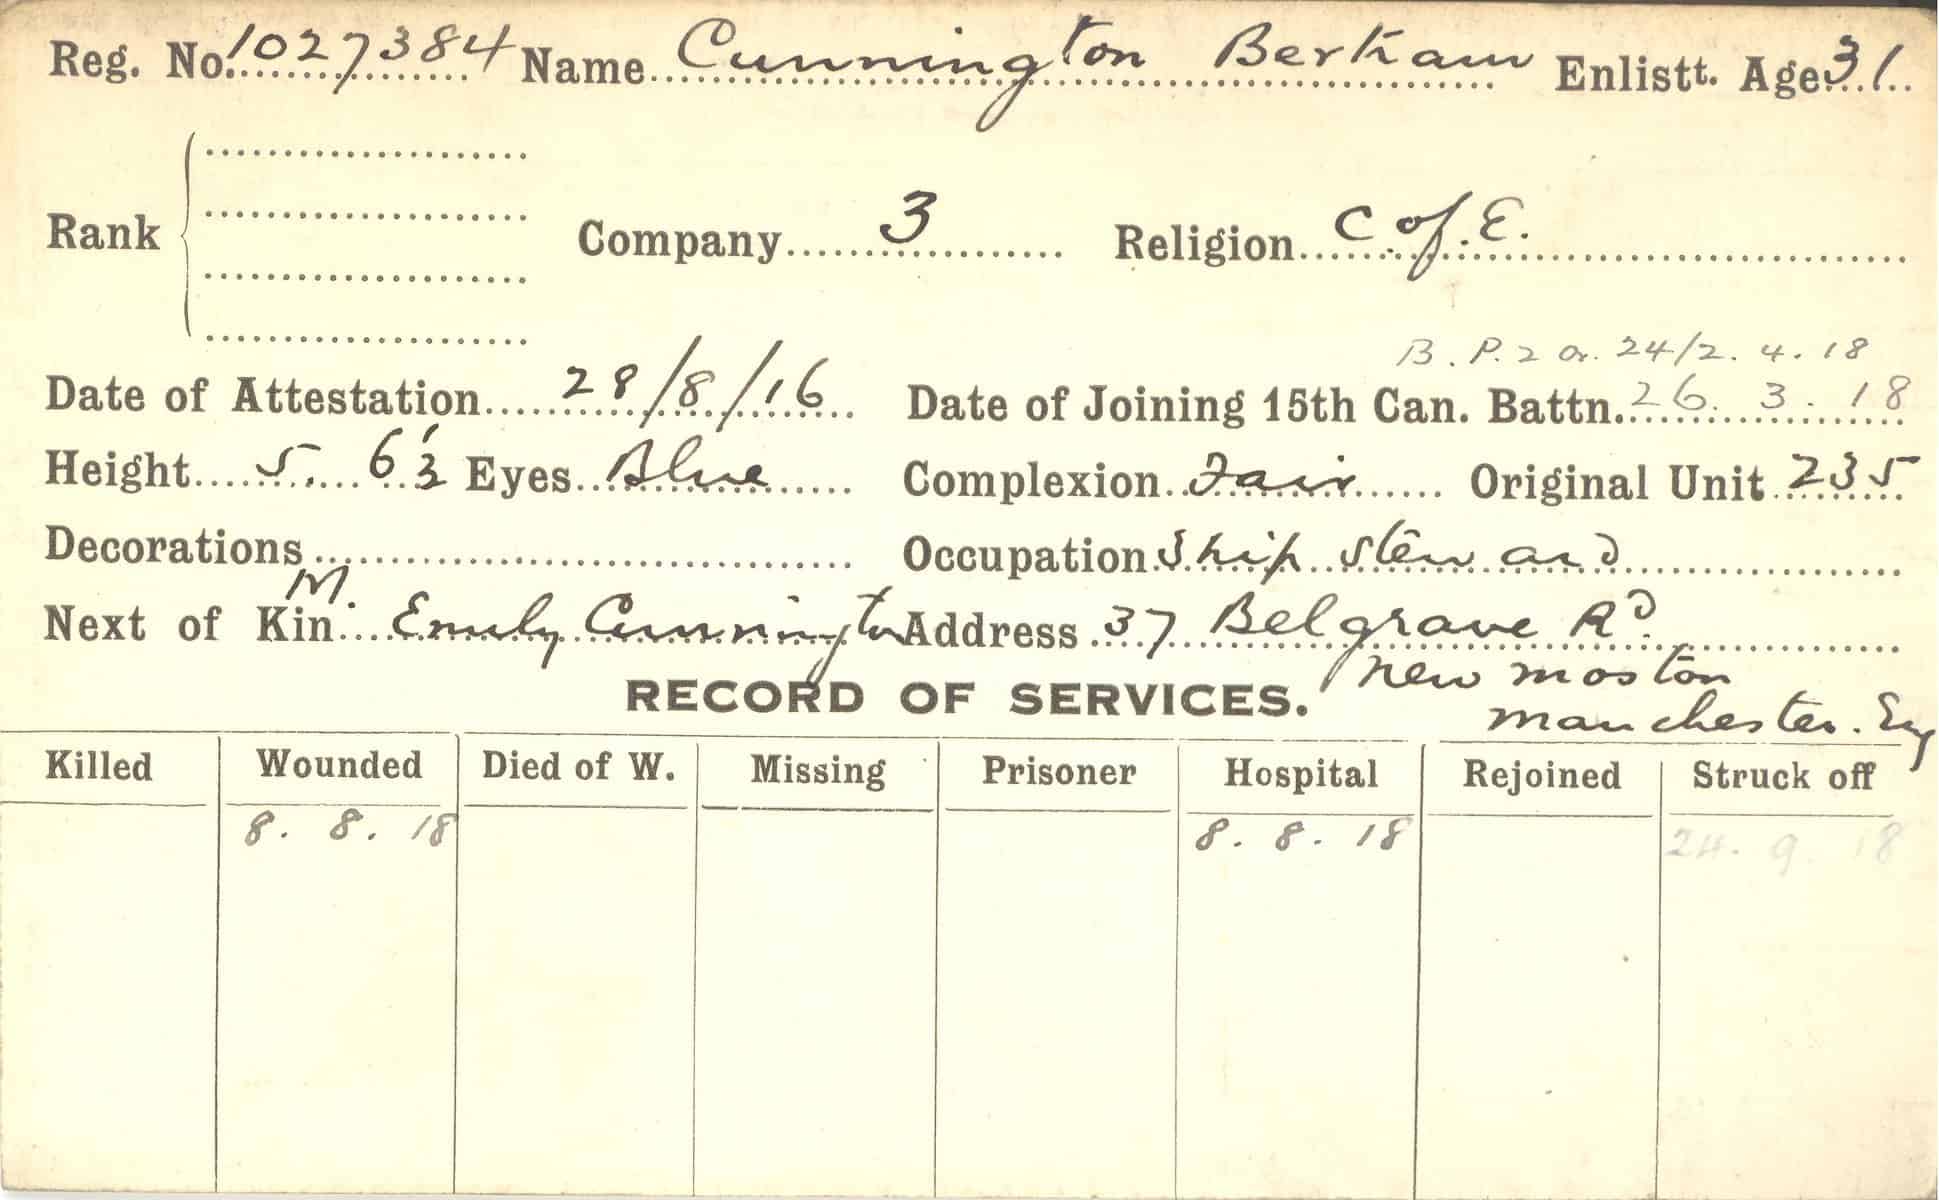 Reg. No. 1027384 Name Cunnington Bertram Enlistt. Age 31
Rank Company 3 Religion C of E.
B. P. 2 Or. 24/2. 4. 18
Date of Attestation 28/8/16 Date of Joining 15th Can. Battn. 26. 3. 18
Height 5. 6 1/2 Eyes Blue Complexion Fair Original Unit 235
Decorations Occupation Ship Steward
Next of Kin M. Emily Cunnington Address 37 Belgrave Rd.
New Moston
Manchester. Eng
RECORD OF SERVICES.
Killed Wounded Died of W. Missing Prisoner Hospital Rejoined Struck off
8. 8. 18 8. 8. 18 24. 9. 18